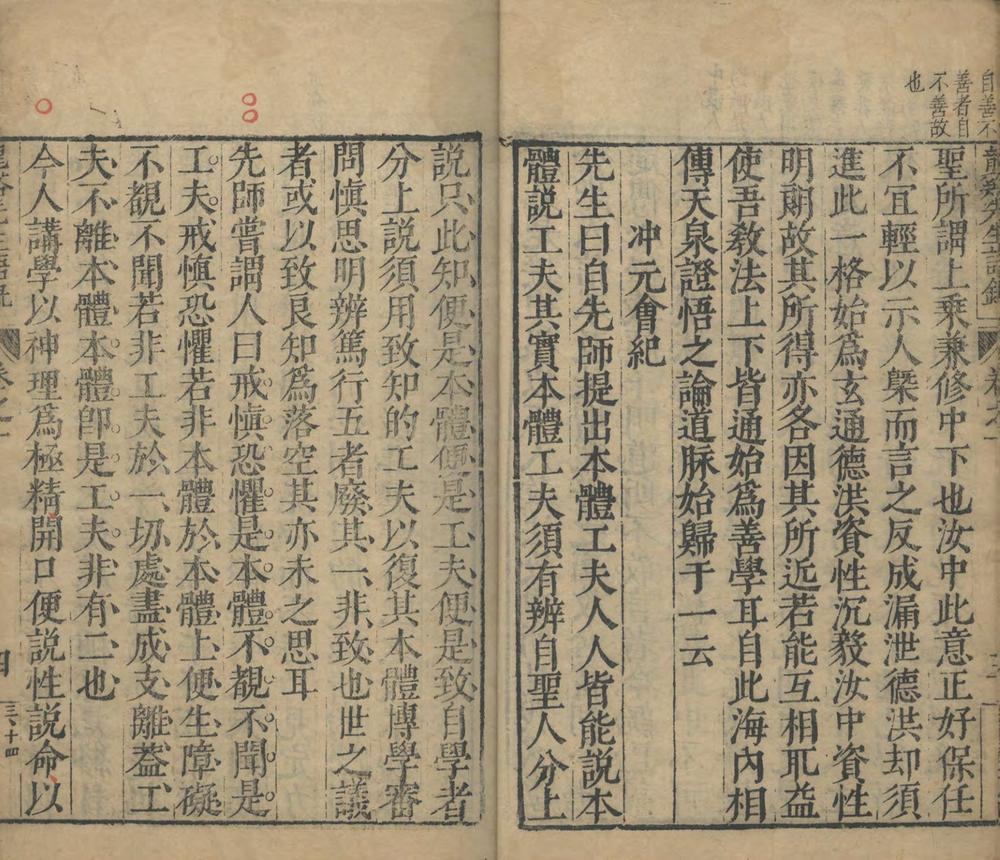 自善不
善者自
不善故
也
龍谿先生語錄
卷之一
聖所謂上乘兼修中下也汝中此意正好保任
不宜輕以示人槩而言之反成漏泄德洪却須
進此一格始爲玄通德洪資性沉毅汝中資性
明朗故其所得亦各因其所近若能互相取益
使吾敎法上下皆通始爲善學耳自此海內相
傳天泉證悟之論道脉始歸于一云
冲元會紀
先生曰自先師提出本體工夫人人皆能說本
體說工夫其實本體工夫須有辨自聖人分上
說只此知便是本體便是工夫便是致自學者
分上說須用致知的工夫以復其本體博學審
問慎思明辨篤行五者廢其一非致也世之議
者或以致良知爲落空其亦未之思耳
先師嘗謂人曰戒慎恐懼是本體不覩不聞是
工夫戒慎恐懼若非本體於本體上便生障礙
不覩不聞若非工夫於一切處盡成支離葢工
夫不離本體本體卽是工夫非有二也
今人講學以神理爲極精開口便說性說命以
卷之一
四
三六十四